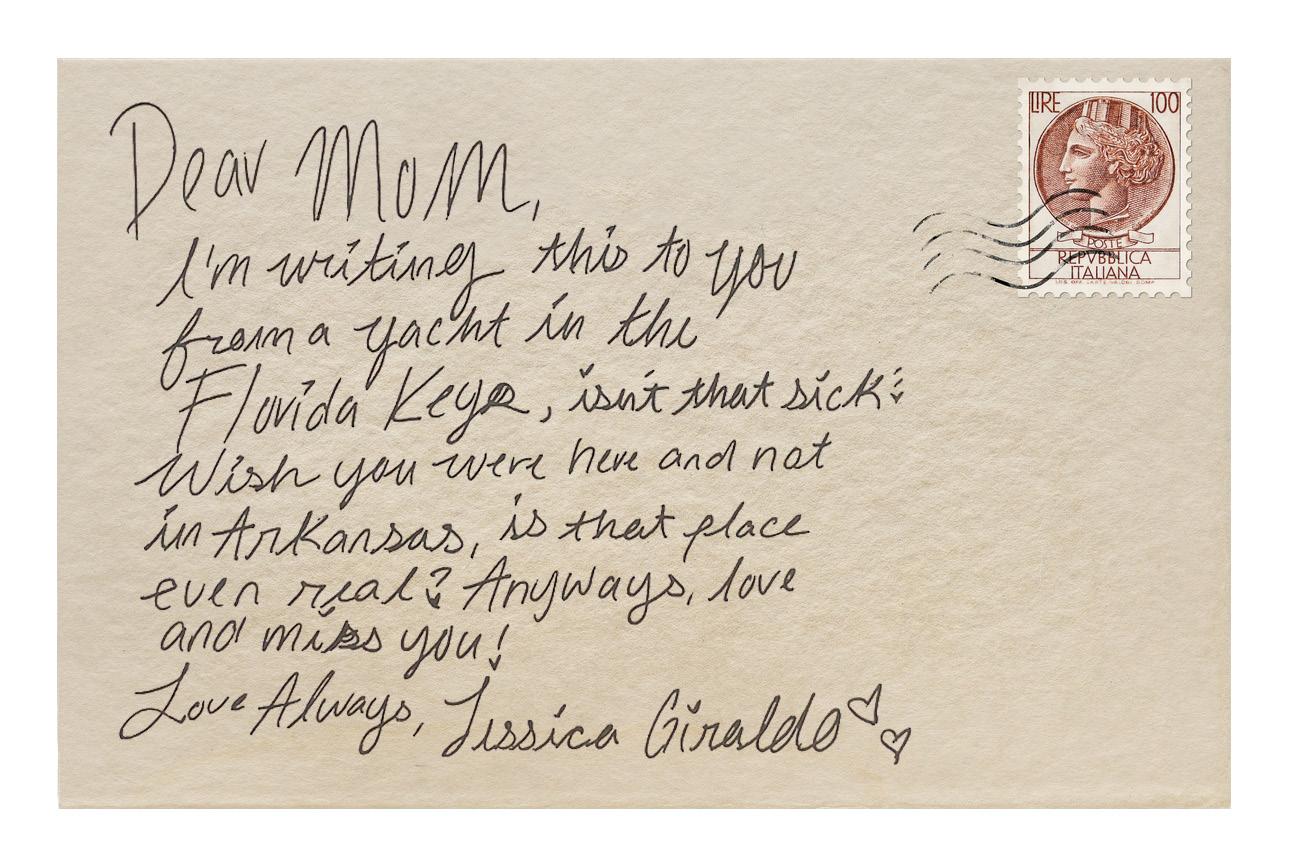 Dear Mom,
I'm writing this to you
from a yacht in the
Florida Keys, isn't that sick?
Wish you were here and not
in Arkansas, is that place
even real? Anyways, love
and miss you!
Love Always, Jessica Giraldo
LIRE 100
POSTE
REPVBBLICA
ITALIANA